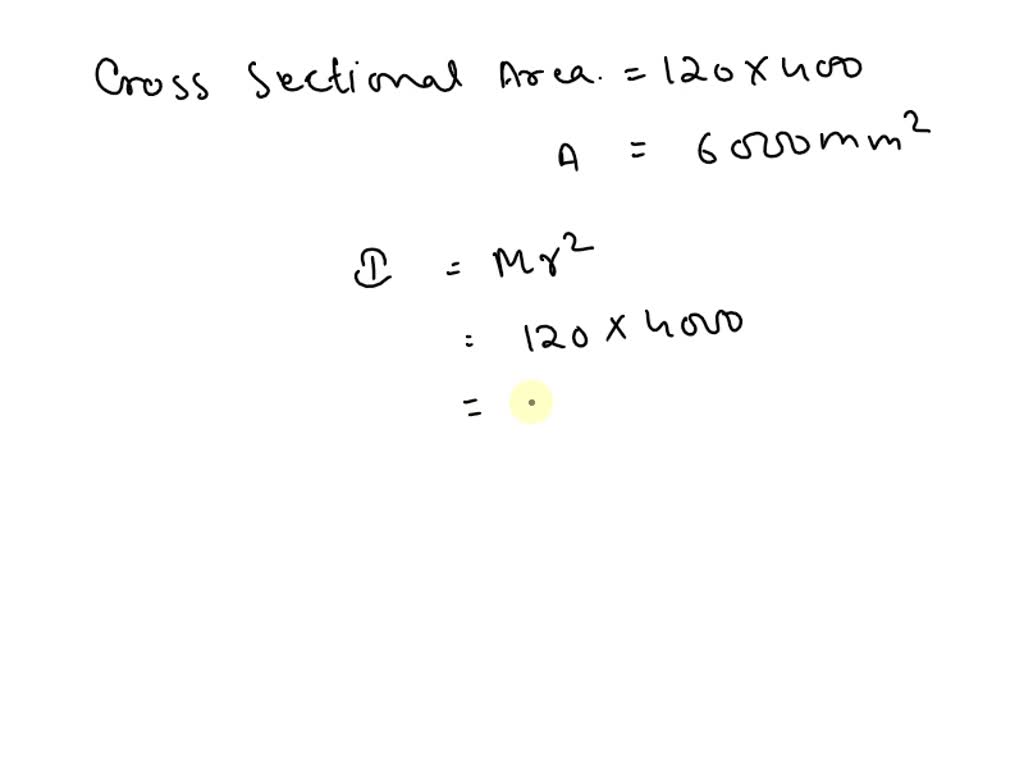 Cross Sectional Area. = 120 × 400
A = 6000 mm²
I = Mr²
= 120 × 4000
=